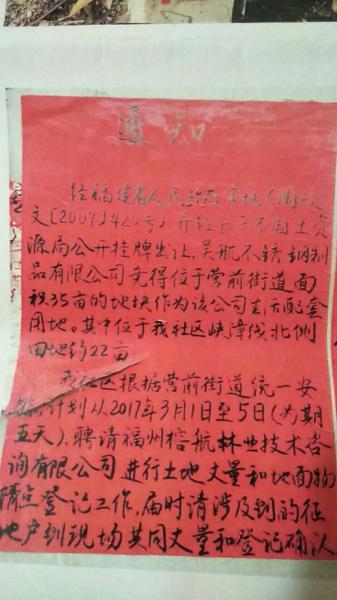 通知
经福建省人民政府审批(闽政
文[2009]420号)并经长乐市国土资
源局公开挂牌出让,吴航不锈钢制
品有限公司竞得位于营前街道面
积35亩的地块作为该公司生活配套
用地。其中位于我社区峡漳线北侧
田地约22亩
我社区根据营前街道统一安
排计划从2017年3月1日至5日(为期
五天),聘请福州榕航林业技术咨
询有限公司进行土地丈量和地面物
清点登记工作,届时请涉及到的征
地户到现场共同丈量和登记确认